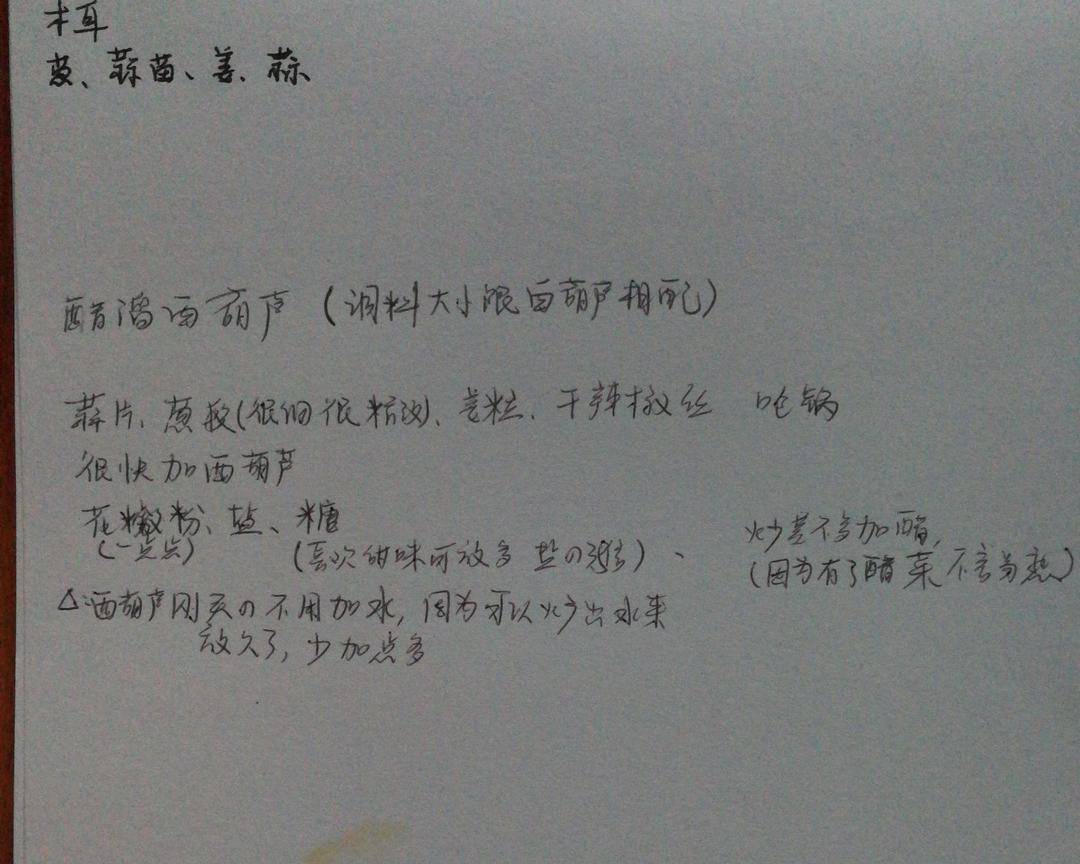 木耳
葱、蒜苗、姜、蒜
醋溜西葫芦（调料大小跟西葫芦相配）
蒜片、葱段(很细很精致)、姜粒、干辣椒丝 呛锅
很快加西葫芦
花椒粉、盐、糖
(一点点) (喜欢甜味可放多 盐の) 、
炒差不多加醋,
(因为有了醋菜不容易熟)
△:西葫芦刚买の不用加水, 因为可以炒出水来
放久了, 少加点